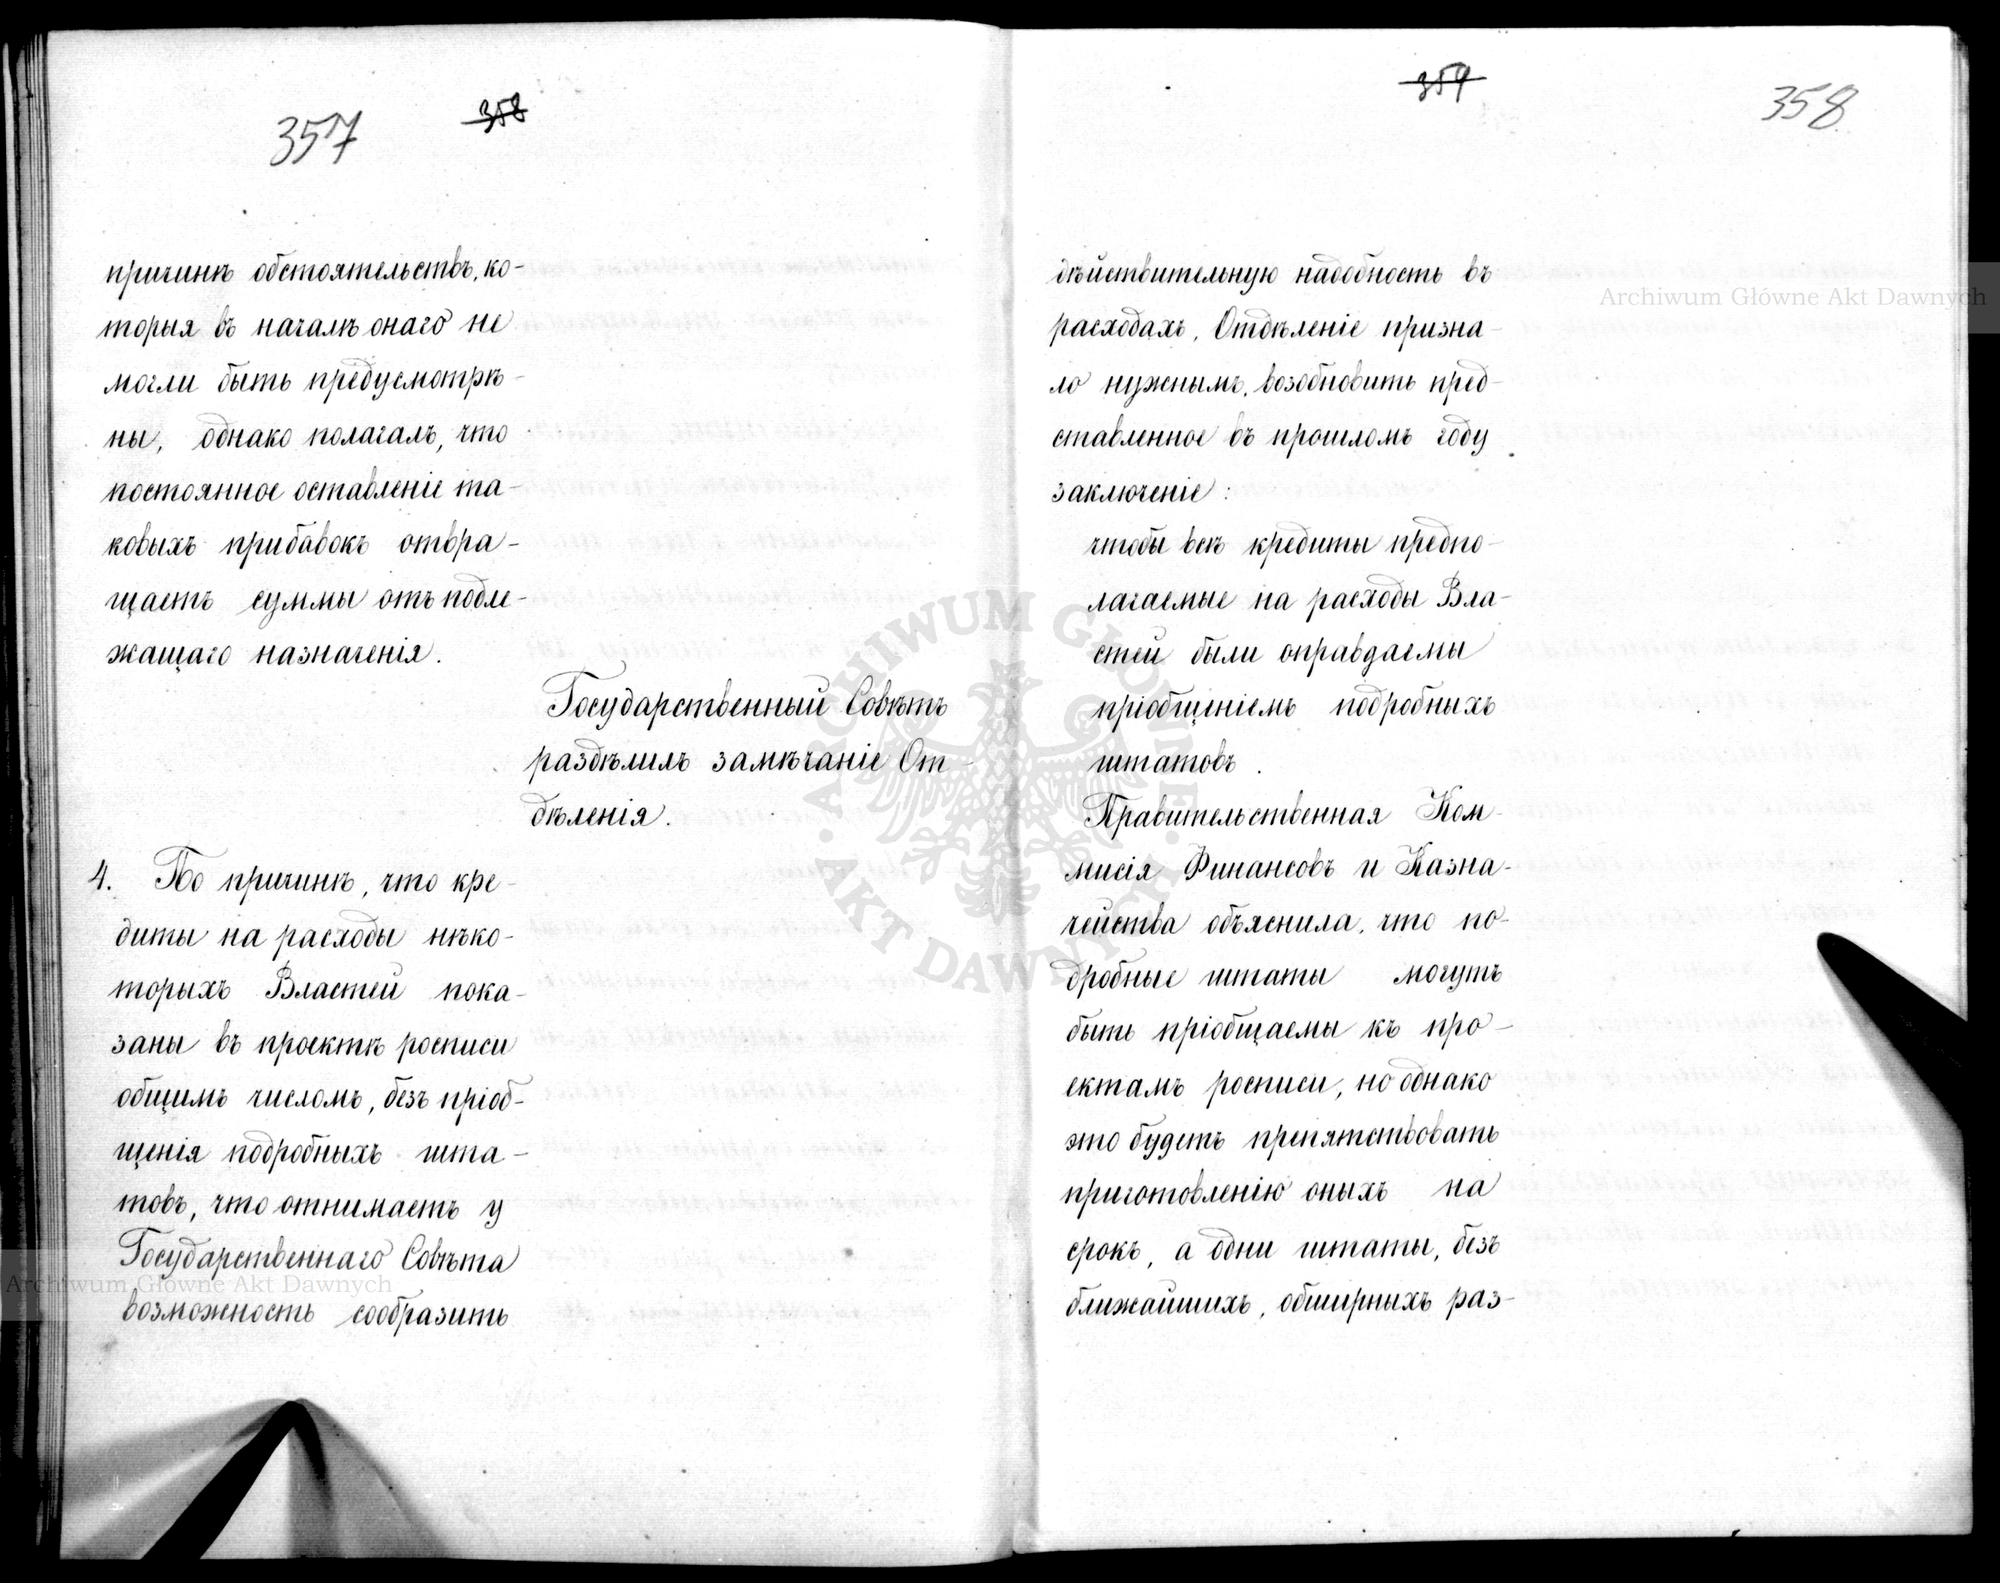 357
358
причинѣ обстоятельствъ, ко-
торыя въ началѣ онаго не
могли быть предусмотрѣ-
ны, однако полагалъ, что
постоянное оставленіе та-
ковыхъ прибавокъ отвра-
щаетъ суммы отъ подле-
жащаго назначенія.
Государственный Совѣтъ
раздѣлилъ замѣчаніе От-
дѣленія.
4. По причинѣ, что кре-
диты на расходы нѣко-
торыхъ Властей пока-
заны въ проектѣ росписи
общимъ числомъ, безъ пріоб-
щенія подробныхъ шта-
товъ, что отнимаетъ у
Государственнаго Совѣта
возможность сообразить
359
358
дѣйствительную надобность въ
расходахъ, Отдѣленіе призна-
ло нужнымъ, возобновить пред-
ставленное въ прошломъ году
заключеніе:
чтобы всѣ кредиты предпо-
лагаемые на расходы Вла-
стей были оправдаемы
пріобщеніемъ подробныхъ
штатовъ.
Правительственная Ком-
мисія Финансовъ и Казна-
чейства объяснила, что по-
дробные штаты могутъ
быть пріобщаемы къ про-
ектамъ росписи, но однако
это будетъ препятствовать
приготовленію оныхъ на
срокъ, а одни штаты, безъ
ближайшихъ, обширныхъ раз-
Archiwum Główne Akt Dawnych
Archiwum Główne Akt Dawnych
ARCHIWUM GŁÓWNE AKT DAWNYCH